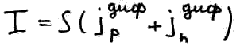 I = S( j_p^диф + j_n^диф )